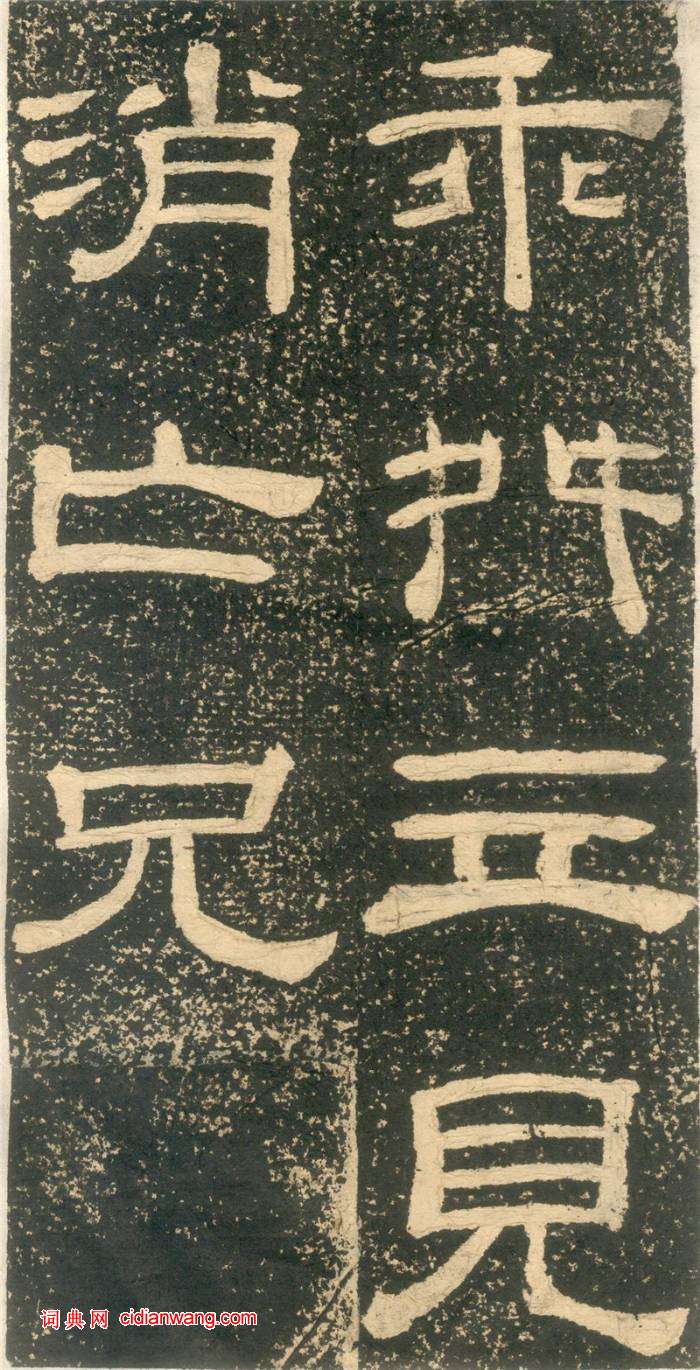 乖舛立見
消亡兄
词典网 cidianwang.com